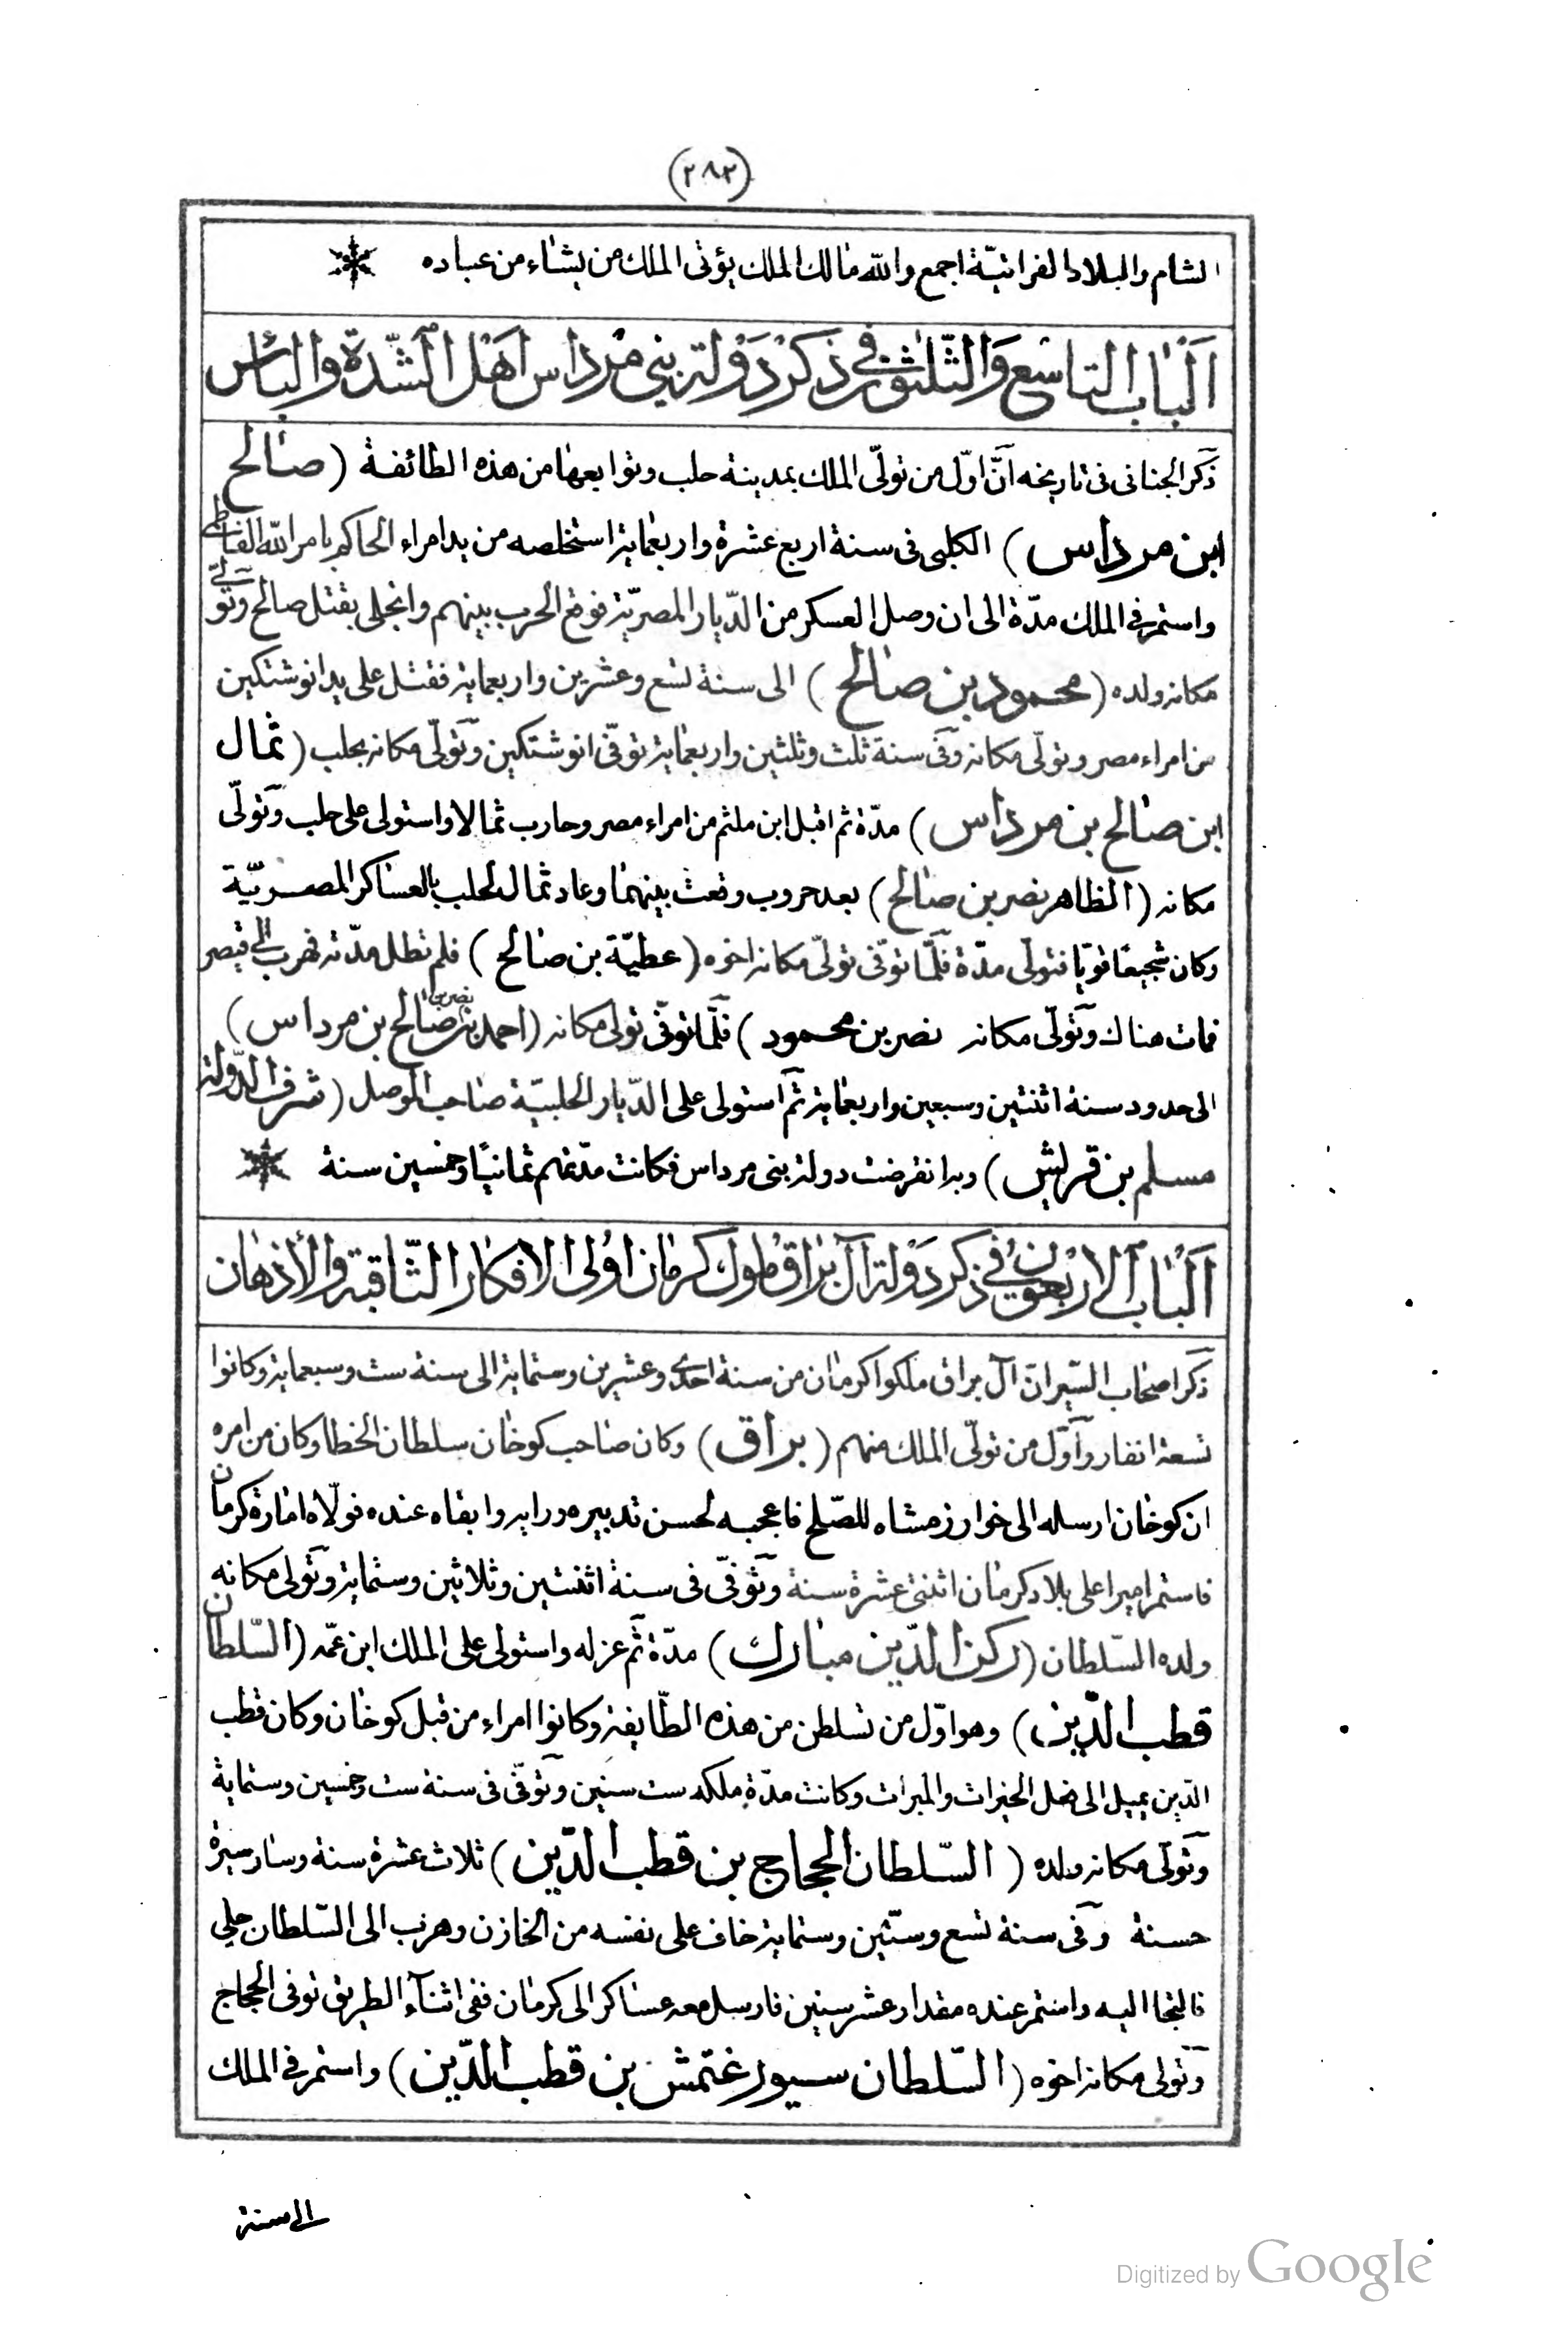 (٢٨٢)
الشام والبلاد الفراتيّة اجمع والله مالك الملك يؤتى الملك من يشاء من عباده
اَلْبَاب التاسع وَالثّلثون في ذكر دَوْلة بنى مرداس اَهْل الشّدة والباس
ذكر الجنانى فى تاريخه اَنّ اوّل من تولّى الملك بمدينة حلب وتوابعها من هذه الطائفة (صالح
ابن مرداس) الكلبى فى سنة اربع عشرة واربعماية استخلصه من يد امراء الحاكم بامر الله الفاطمى
واستمر في الملك مدّة الى ان وصل العسكر من الدّيار المصريّة فوقع الحرب بينهم وانجلى بقتل صالح وتولى
مكانه ولده (محمود بن صالح) الى سنة تسع وعشرين واربعماية فقتل على يد انوشتكين
من امراء مصر وتولّى مكانه وفى سنة ثلث وثلثين واربعماية توفّى انوشتكين وتولّى مكانه بحلب (ثمال
ابن صالح بن مرداس) مدّة ثم اقبل ابن ملثم من امراء مصر وحارب ثمالا واستولى على حلب وتولّى
مكانه (الظاهر نصر بن صالح) بعد حروب وقعت بينهما وعاد ثمال لحلب بالعساكر المصريّة
وكان شجيعا قويّا فتولى مدّة فلمّا توفّى تولّى مكانه اخوه (عطيّة بن صالح) فلم تطل مدّته فهرب الى قيصر
فمات هناك وتولّى مكانه نصر بن محمود) فلمّا توفّى تولى مكانه (احمد بن نصر بن صالح بن مرداس)
الى حدود سنة اثنتين وسبعين واربعماية ثم استولى على الدّيار الحلبيّة صاحب الموصل (شرف الدّولة
مسلم بن قريش) وبه انقرضت دولة بنى مرداس فكانت مدّتهم ثمانيًا وخمسين سنة
اَلْبَاب الاربعون في ذكر دَوْلة آل براق ملوك كرمان اولى الافكار الثّاقبة والأذهان
ذكر اصحاب السّير ان آل براق ملكوا كرمان من سنة احدى وعشرين وستماية الى سنة ست وسبعماية وكانوا
تسعة انفار واَوّل من تولّى الملك منهم (براق) وكان صاحب كوخان سلطان الخطا وكان من امره
ان كوخان ارسله الى خوارزمشاه للصّلح فاعجبه لحسن تدبيره ورايه وابقاه عنده فولّاه امارة كرمان
فاستمر اميرا على بلاد كرمان اثنتى عشرة سنة وتوفّى فى سنة اثنتين وثلاثين وستماية وتولى مكانه
ولده السّلطان (ركن الدّين مبارك) مدّة ثم عزله واستولى على الملك ابن عمّه (السّلطان
قطب الدّين) وهو اوّل من تسلطن من هذه الطّايفة وكانوا امراء من قبل كوخان وكان قطب
الدّين يميل الى فعل الخيرات والمبرات وكانت مدّة ملكه ست سنين وتوفّى فى سنة ست وخمسين وستماية
وتولّى مكانه ولده (السّلطان الحجاج بن قطب الدّين) ثلاث عشرة سنة وسار سيرة
حسنة وفى سنة تسع وستّين وستماية خاف على نفسه من الخازن وهرب الى السّلطان جلي
فالتجا اليه واستمر عنده مقدار عشر سنين فارسل معه عساكر الى كرمان ففى اثناء الطريق توفى الحجاج
وتولى مكانه اخوه (السّلطان سيورغتمش بن قطب الدّين) واستمر في الملك
الى سنة
Digitized by Google